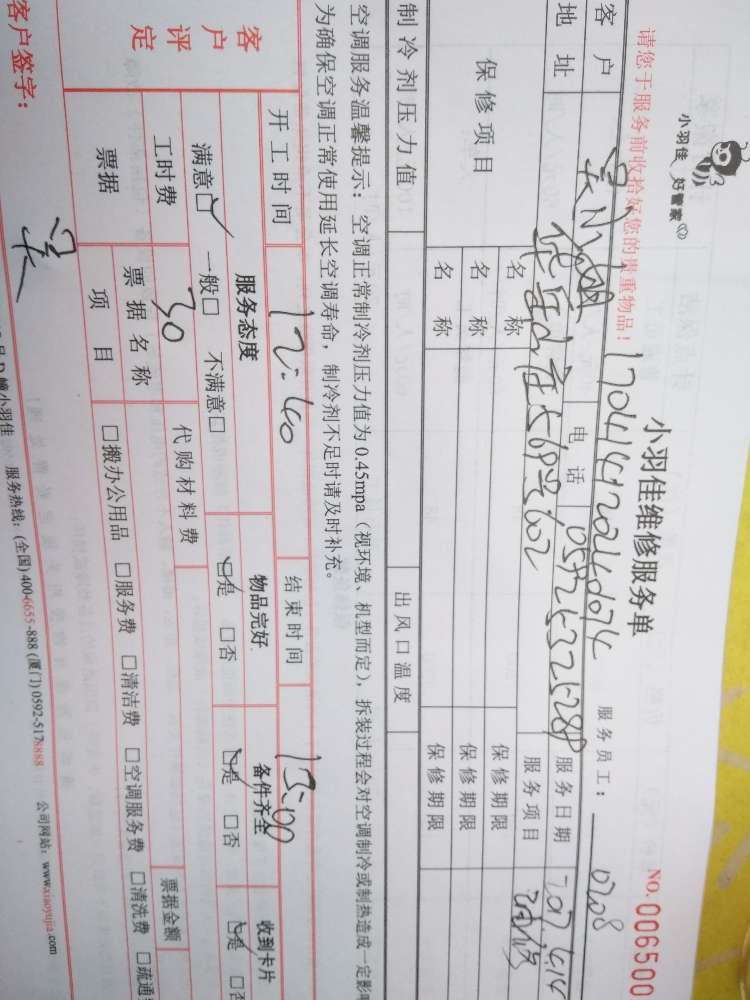 小羽佳 好管家
小羽佳维修服务单
No. 006500
请您于服务前收拾好您的贵重物品!
17041412024d074
服务员工: 0708
客户
电话 05925325288
服务日期
地址 568号602
服务项目
保修项目 名称 保修期限
名称 保修期限
名称 保修期限
制冷剂压力值 出风口温度
空调服务温馨提示: 空调正常制冷剂压力值为 0.45mpa (视环境、机型而定), 拆装过程会对空调制冷或制热造成一定影响
为确保空调正常使用延长空调寿命, 制冷剂不足时请及时补充。
开工时间 12:40 结束时间 13:00
客户评定
服务态度 物品完好 备件齐全 收到卡片
满意☑ 一般□ 不满意□ ☑是 □否 ☑是 □否 ☑是 □否
工时费 30 代购材料费 票据金额
票据 票据名称
项目 □搬办公用品 □服务费 □清洁费 □空调服务费 □清洗费 □疏通
客户签字: 吴
D幢小羽佳 服务热线: (全国) 400-6655-888 (厦门) 0592-5178888 公司网站: www.xiaoyujia.com